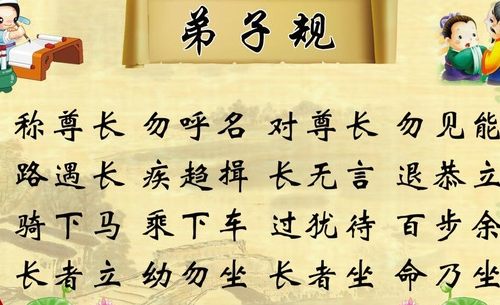 弟子规
称尊长 勿呼名 对尊长 勿见能
路遇长 疾趋揖 长无言 退恭立
骑下马 乘下车 过犹待 百步余
长者立 幼勿坐 长者坐 命乃坐